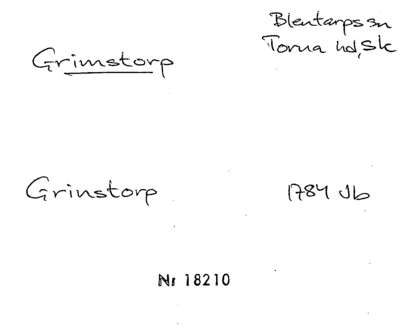 Grimstorp
Blentarps sn
Torna hd, Sk
Grinstorp
1784 Jb
Nr 18210